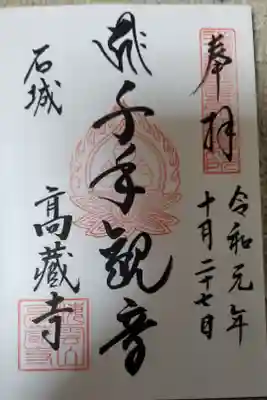 奉拝
令和元年
十月二十七日
千手觀音
石城
高藏寺